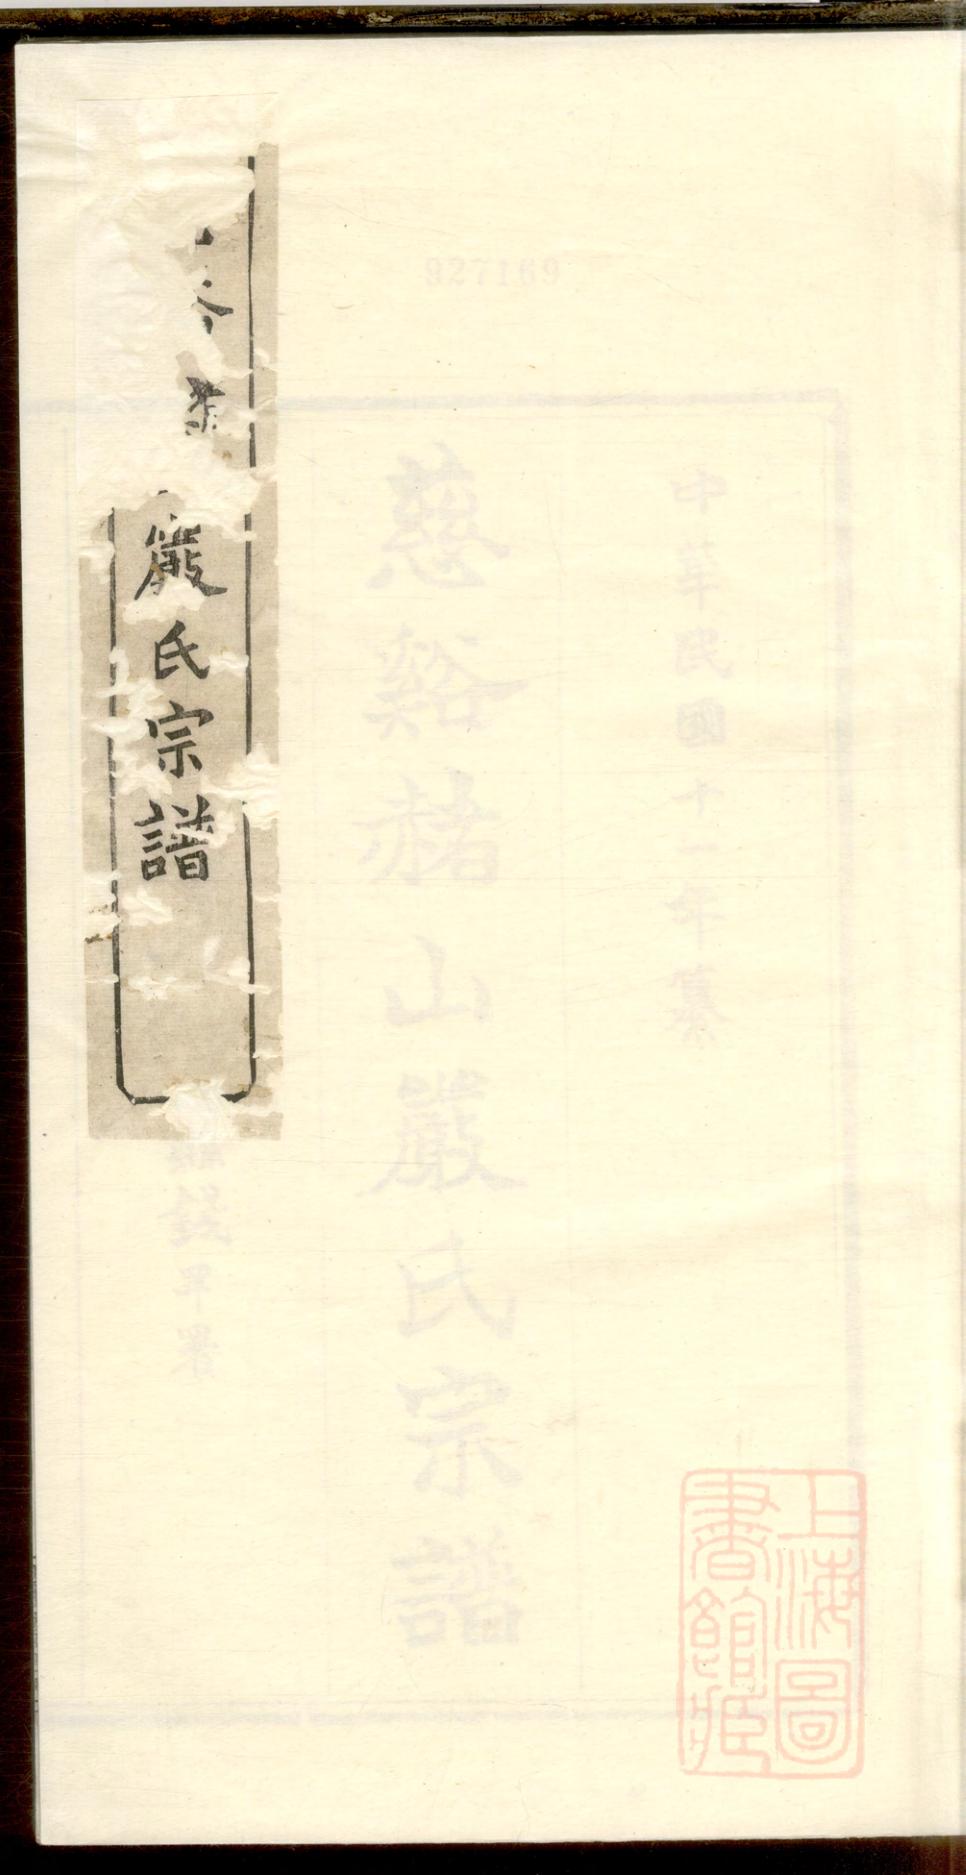 927169
中華民國十一年纂
慈谿赭山嚴氏宗譜
錢罕署
嚴氏宗譜
上海圖
書館藏